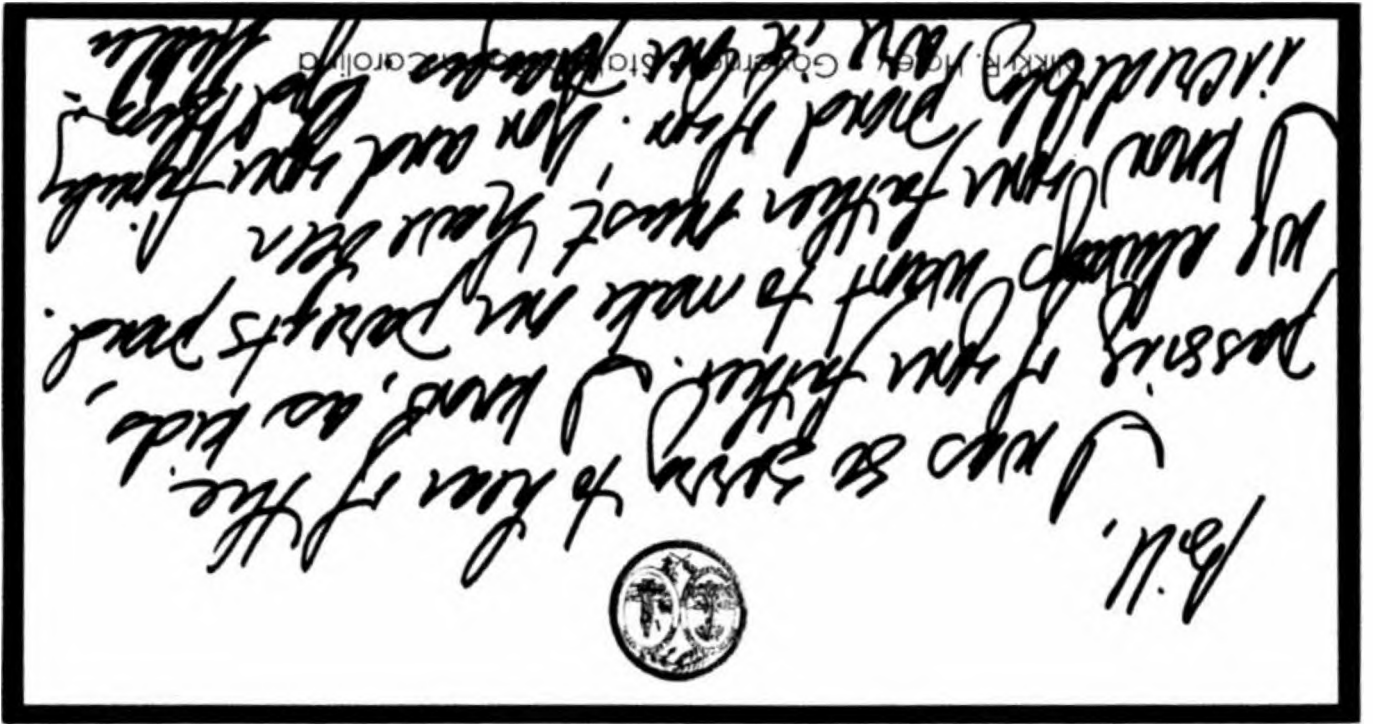 Bill,
I was so sorry to hear of the
passing of your father. I know, as kids,
we always want to make our parents proud.
I know your father must have been
incredibly proud of you. You and your family
are in our
Nikki R. Haley · Governor · State of South Carolina